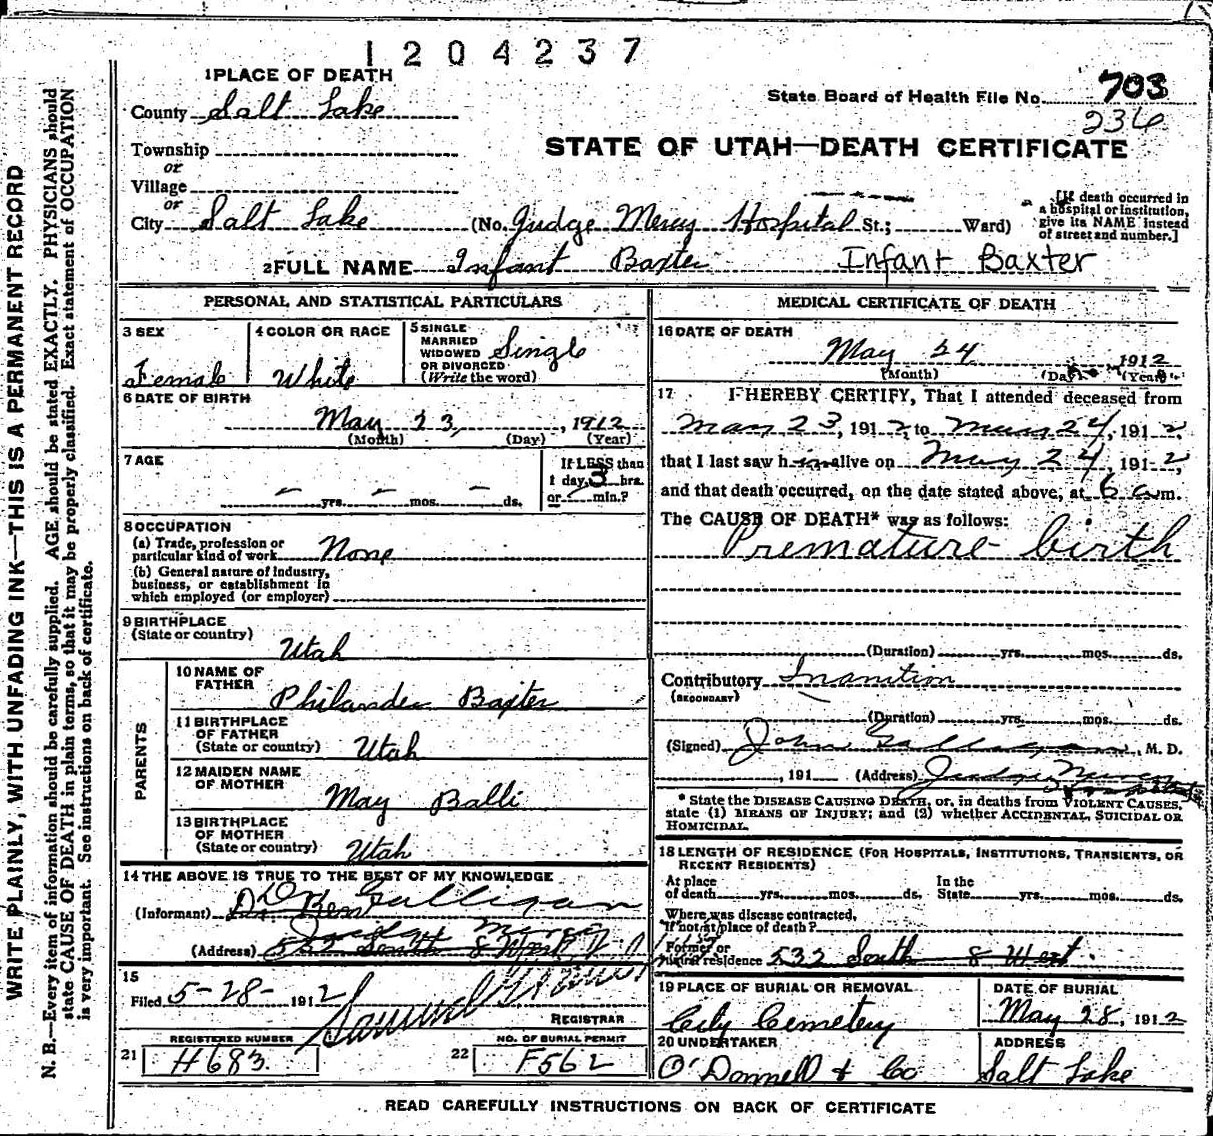 1204237
1 PLACE OF DEATH
County Salt Lake
State Board of Health File No. 703
236
Township
or
Village
or
City Salt Lake
STATE OF UTAH—DEATH CERTIFICATE
(No. Judge Mercy Hospital St.; Ward)
[If death occurred in
a hospital or institution,
give its NAME instead
of street and number.]
2 FULL NAME Infant Baxter Infant Baxter
PERSONAL AND STATISTICAL PARTICULARS
3 SEX
Female
4 COLOR OR RACE
White
5 SINGLE
MARRIED
WIDOWED
OR DIVORCED
(Write the word)
Single
6 DATE OF BIRTH
May 23, 1912
(Month) (Day) (Year)
7 AGE
— yrs. — mos. — ds.
If LESS than
1 day, 3 hrs.
or min.?
8 OCCUPATION
(a) Trade, profession or
particular kind of work None
(b) General nature of industry,
business, or establishment in
which employed (or employer)
9 BIRTHPLACE
(State or country)
Utah
PARENTS
10 NAME OF
FATHER
Philander Baxter
11 BIRTHPLACE
OF FATHER
(State or country) Utah
12 MAIDEN NAME
OF MOTHER
May Balli
13 BIRTHPLACE
OF MOTHER
(State or country) Utah
14 THE ABOVE IS TRUE TO THE BEST OF MY KNOWLEDGE
(Informant) Dr Galligan
(Address) Judge Mercy
532 South 8 West
15
Filed 5-28- 1912
Samuel
REGISTRAR
REGISTERED NUMBER
21 H683.
NO. OF BURIAL PERMIT
22 F562
MEDICAL CERTIFICATE OF DEATH
16 DATE OF DEATH
May 24 1912
(Month) (Day) (Year)
17 I HEREBY CERTIFY, That I attended deceased from
May 23, 1912, to May 24, 1912,
that I last saw h alive on May 24, 1912,
and that death occurred, on the date stated above, at 6 a m.
The CAUSE OF DEATH* was as follows:
Premature birth
(Duration) yrs. mos. ds.
Contributory Inanition
(SECONDARY)
(Duration) yrs. mos. ds.
(Signed) John Galligan, M. D.
, 191 (Address) Judge Mercy
Hospital
* State the DISEASE CAUSING DEATH, or, in deaths from VIOLENT CAUSES,
state (1) MEANS OF INJURY; and (2) whether ACCIDENTAL, SUICIDAL OR
HOMICIDAL.
18 LENGTH OF RESIDENCE (FOR HOSPITALS, INSTITUTIONS, TRANSIENTS, OR
RECENT RESIDENTS)
At place
of death yrs. mos. ds.
In the
State yrs. mos. ds.
Where was disease contracted,
if not at place of death?
Former or
usual residence 532 South 8 West
19 PLACE OF BURIAL OR REMOVAL
City Cemetery
DATE OF BURIAL
May 28, 1912
20 UNDERTAKER
O'Donnell & Co
ADDRESS
Salt Lake
READ CAREFULLY INSTRUCTIONS ON BACK OF CERTIFICATE
WRITE PLAINLY, WITH UNFADING INK—THIS IS A PERMANENT RECORD
N. B.—Every item of information should be carefully supplied. AGE should be stated EXACTLY. PHYSICIANS should
state CAUSE OF DEATH in plain terms, so that it may be properly classified. Exact statement of OCCUPATION
is very important. See instructions on back of certificate.